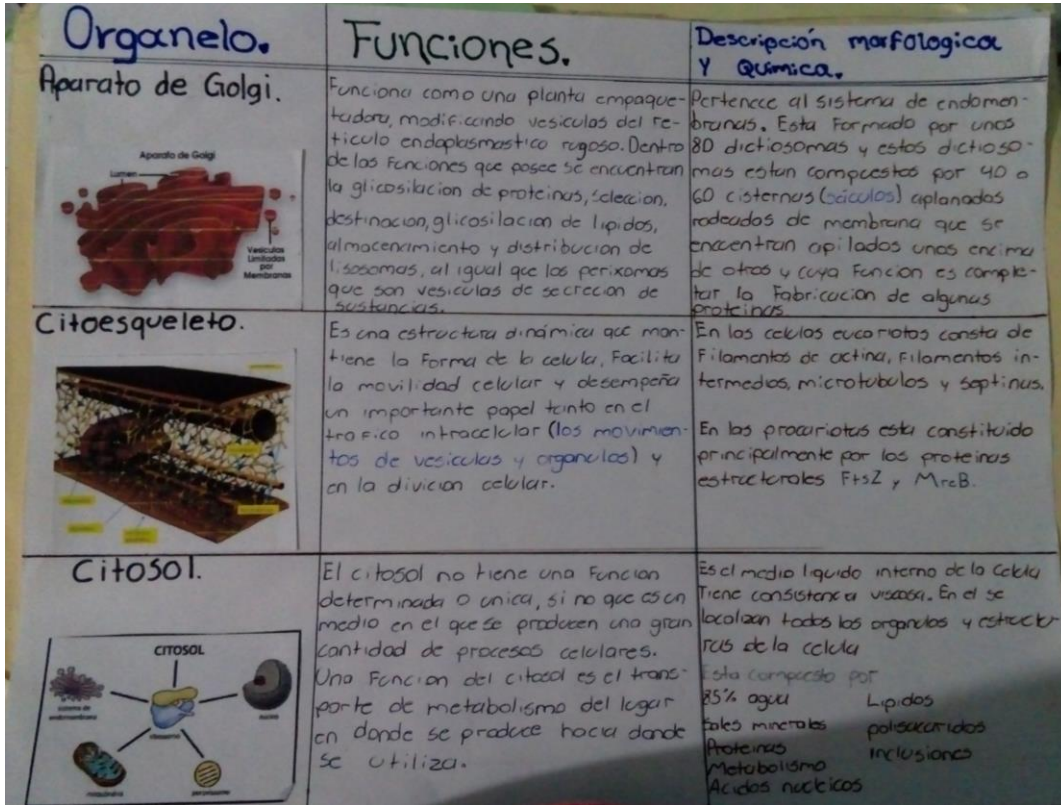 Organelo.
Funciones.
Descripción morfologica
Y Quimica.
Aparato de Golgi.
Aparato de Golgi
Lumen
Vesículas
Limitadas
por
Membranas
Funciona como una planta empaque-
tadora, modificando vesiculas del re-
ticulo endoplasmastico rugoso. Dentro
de las funciones que posee se encuentran
la glicosilacion de proteinas, seleccion,
destinacion, glicosilacion de lipidos,
almacenamiento y distribucion de
lisosomas, al igual que los perixomas
que son vesiculas de secrecion de
sustancias.
Pertenece al sistema de endomen-
branas. Esta formado por unos
80 dictiosomas y estos dictioso-
mas estan compuestos por 40 o
60 cisternas (sáculos) aplanados
rodeados de membrana que se
encuentran apilados unos encima
de otros y cuya funcion es comple-
tar la fabricacion de algunas
proteinas
Citoesqueleto.
Es una estructura dinámica que man-
tiene la forma de la celula, facilita
la movilidad celular y desempeña
un importante papel tanto en el
trafico intracelular (los movimien-
tos de vesiculas y organulos) y
en la divicion celular.
En las celulas eucariotas consta de
filamentos de actina, filamentos in-
termedios, microtubulos y septinas.
En las procariotas esta constituido
principalmente por las proteinas
estructurales FtsZ y MreB.
Citosol.
CITOSOL
sistema de
endomembrana
nucleo
ribosoma
mitocondria
peroxisoma
El citosol no tiene una funcion
determinada o unica, si no que es un
medio en el que se producen una gran
cantidad de procesos celulares.
Una funcion del citosol es el trans-
porte de metabolismo del lugar
en donde se produce hacia donde
se utiliza.
Es el medio liquido interno de la celula
Tiene consistencia viscosa. En el se
localizan todos los organulos y estructu-
ras de la celula
Esta compuesto por
85% agua Lipidos
Sales minerales polisacaridos
Proteinas inclusiones
Metabolismo
Acidos nucleicos